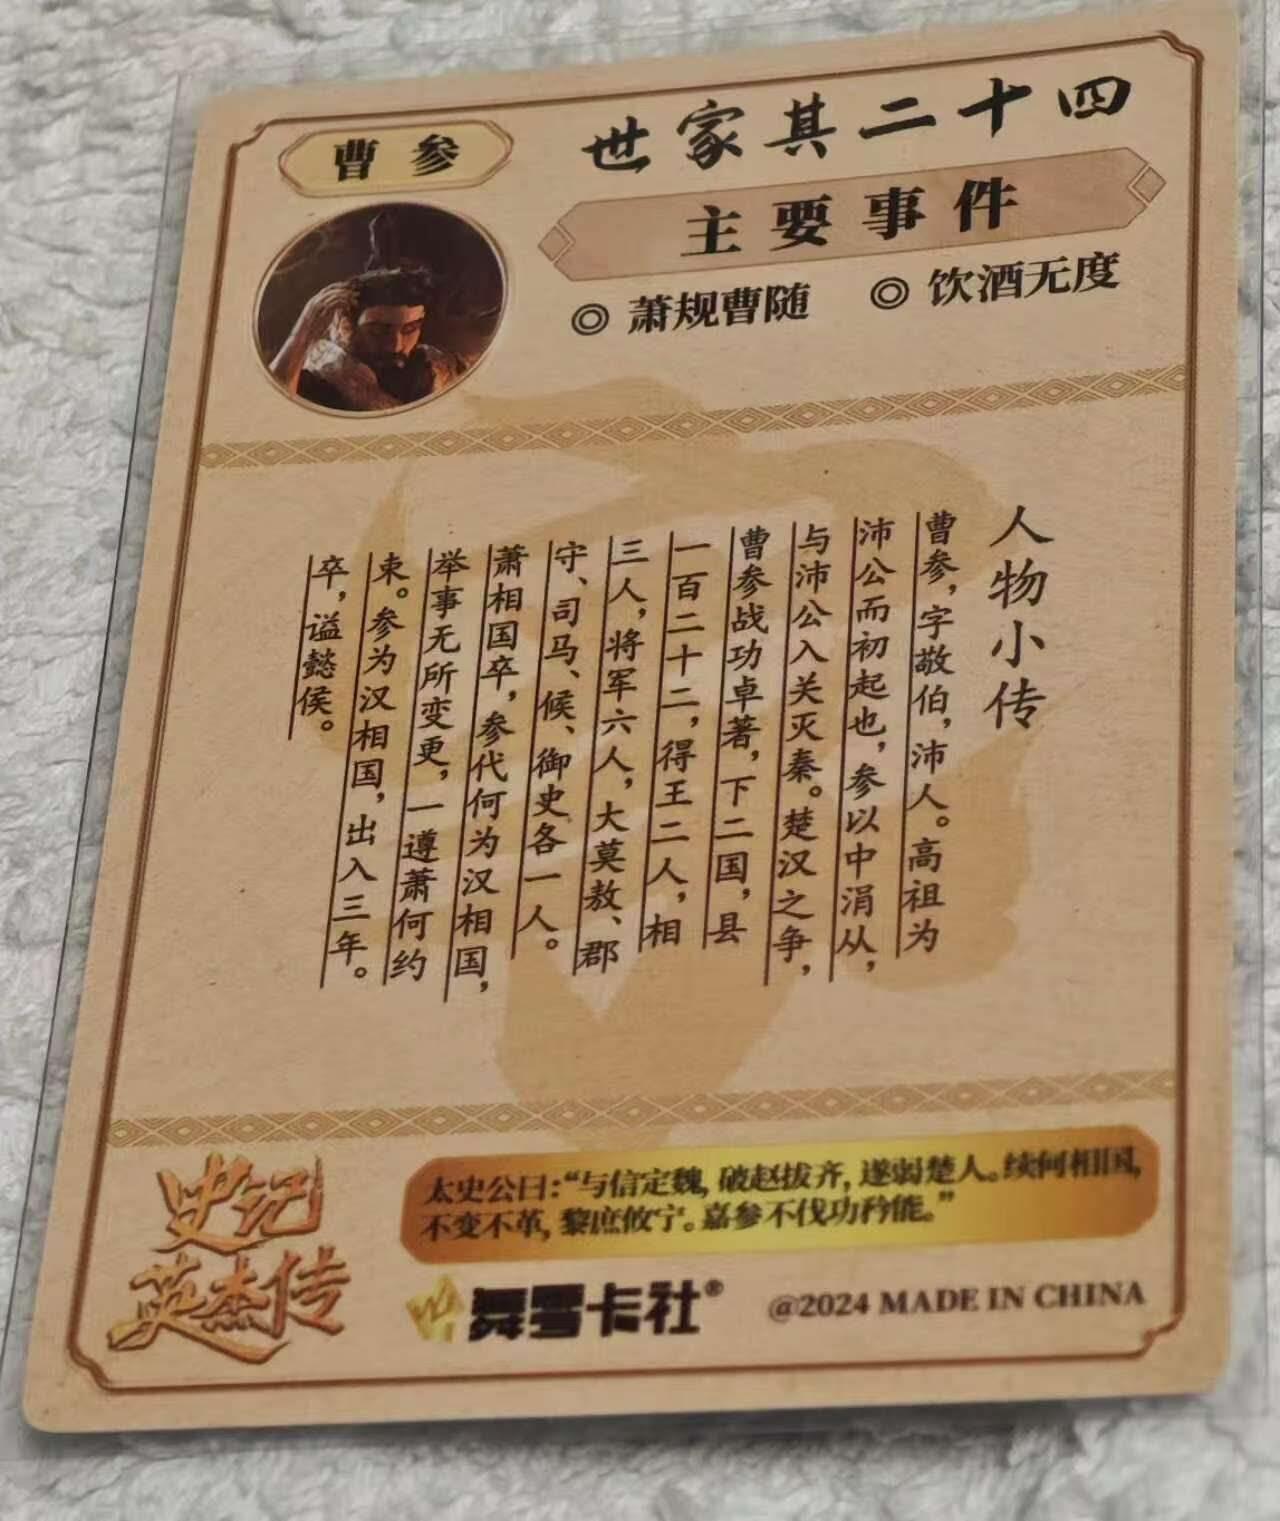 曹参
世家其二十四
主要事件
◎ 萧规曹随 ◎ 饮酒无度
人物小传
曹参，字敬伯，沛人。高祖为
沛公而初起也，参以中涓从，
与沛公入关灭秦。楚汉之争，
曹参战功卓著，下二国，县
一百二十二，得王二人，相
三人，将军六人，大莫敖、郡
守、司马、候、御史各一人。
萧相国卒，参代何为汉相国，
举事无所变更，一遵萧何约
束。参为汉相国，出入三年。
卒，谥懿侯。
太史公曰：“与信定魏，破赵拔齐，遂弱楚人。续何相国，
不变不革，黎庶攸宁。嘉参不伐功矜能。”
史记
英杰传
舞雩卡社®
@2024 MADE IN CHINA